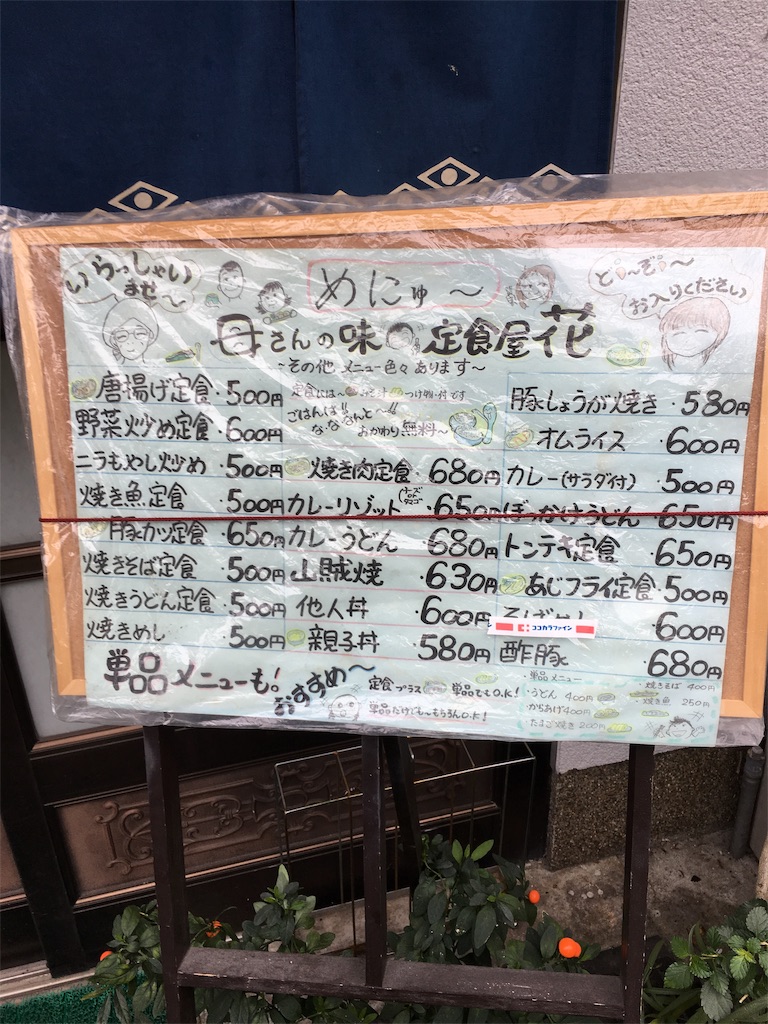 いらっしゃい
ませ〜
めにゅ〜
ど〜ぞ〜
お入りください
母さんの味 定食屋花
〜その他メニュー色々あります〜
唐揚げ定食・500円
野菜炒め定食・600円
ニラもやし炒め・500円
焼き魚定食・500円
豚カツ定食・650円
焼きそば定食・500円
焼きうどん定食・500円
焼きめし・500円
定食には みそ汁 つけ物付です
ごはんは!!
な・ななんと〜!!
おかわり無料〜
焼き肉定食・680円
カレーリゾット・650円
カレーうどん・680円
山賊焼・630円
他人丼・600円
親子丼・580円
豚しょうが焼き・580円
オムライス・600円
カレー(サラダ付)・500円
ぼっかけうどん・650円
トンテキ定食・650円
あじフライ定食・500円
・600円
ココカラファイン
酢豚・680円
単品メニューも!
おすすめ〜
定食プラス 単品でもO.K!
単品だけでも〜もちろんO.K!
・単品メニュー
・うどん 400円
・からあげ400円
・たまご焼き 200円
・焼きそば 400円
・焼き魚 250円